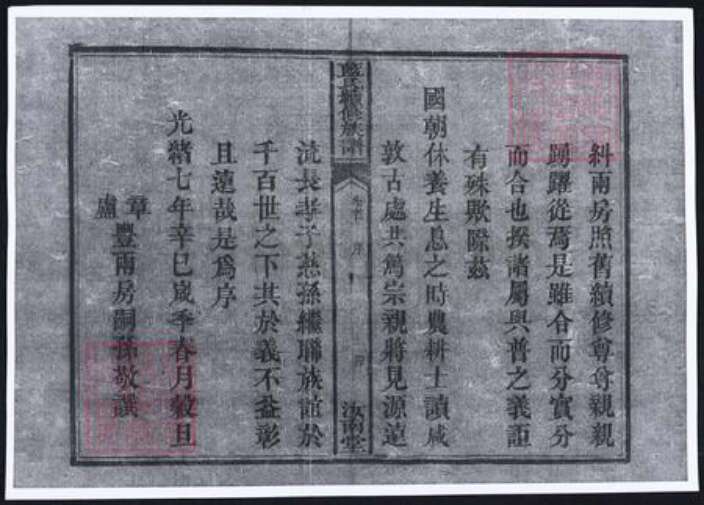 糾兩房照舊續修尊尊親親
踴躍從焉是雖合而分實分
而合也揆諸屬與普之義詎
有殊歟際茲
國朝休養生息之時農耕士讀咸
敦古處共篤宗親將見源遠
藍氏續修族譜
卷首 序
汝南堂
流長孝子慈孫繼聯族誼於
千百世之下其於義不益彰
且遠哉是爲序
光緒七年辛巳歲季春月穀旦
章
盧
豐兩房嗣孫敬譔